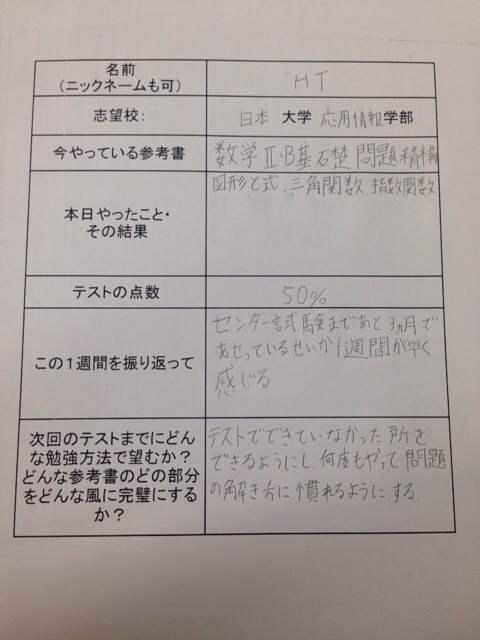 名前
(ニックネームも可)
HT
志望校:
日本 大学 応用情報学部
今やっている参考書
数学Ⅱ·B基礎問題精構
本日やったこと・
その結果
図形と式、三角関数、指数関数
テストの点数
50%
この1週間を振り返って
センター試験まであと3ヵ月で
あせっているせいか1週間が早く
感じる
次回のテストまでにどん
な勉強方法で望むか?
どんな参考書のどの部分
をどんな風に完璧にする
か?
テストでできていなかった所を
できるようにし、何度もやって問題
の解き方に慣れるようにする